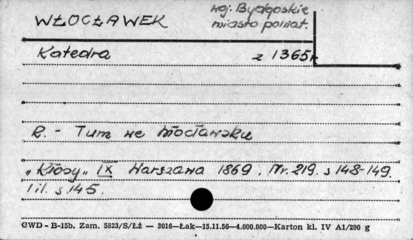 WŁOCŁAWEK
woj. Bydgoskie
miasto powiat.
Katedra z 1365 r.
R. - Tum we Włocławsku
„Kłosy„ IX Warszawa 1869. Nr. 219. s 148-149.
1 il. s. 145.
CWD - B-15b. Zam. 5823/S/Łż — 3016—Łak—15.11.56—4.000.000—Karton kl. IV A1/200 g